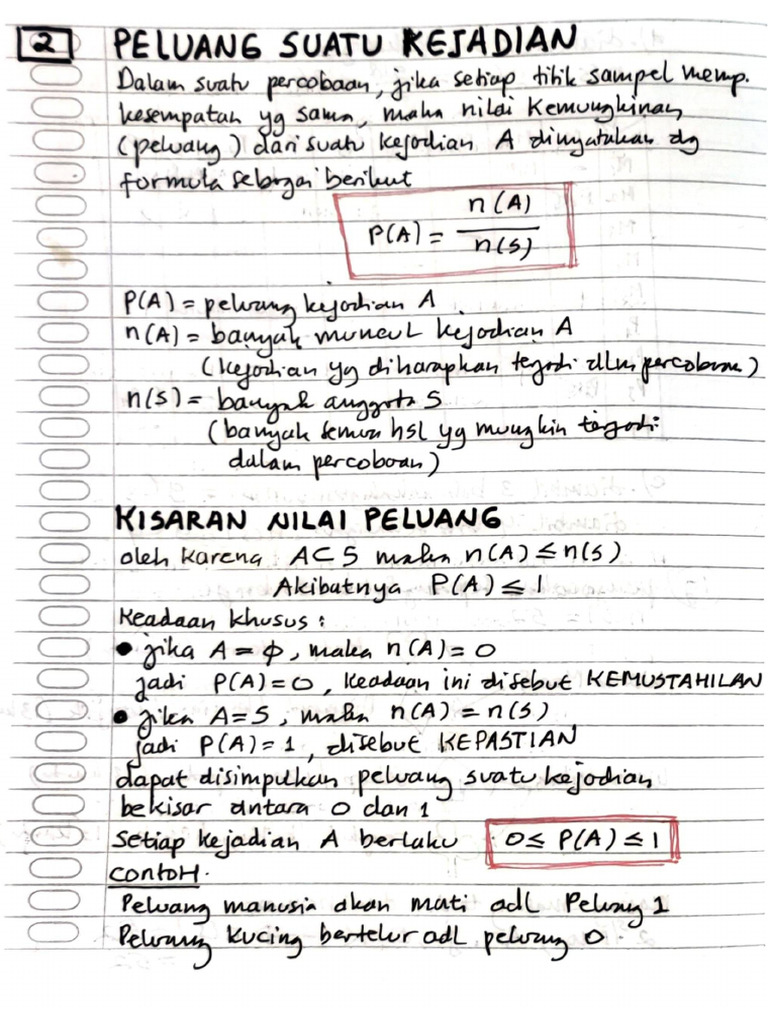 2 PELUANG SUATU KEJADIAN
Dalam suatu percobaan, jika setiap titik sampel memp.
kesempatan yg sama, maka nilai kemungkinan
(peluang) dari suatu kejadian A dinyatakan dg
formula sebagai berikut
P(A) = n(A) / n(S)
P(A) = peluang kejadian A
n(A) = banyak muncul kejadian A
(kejadian yg diharapkan terjadi dlm percobaan)
n(S) = banyak anggota S
(banyak semua hsl yg mungkin terjadi
dalam percobaan)
KISARAN NILAI PELUANG
oleh karena A⊂S maka n(A) ≤ n(S)
Akibatnya P(A) ≤ 1
Keadaan khusus :
• jika A = ϕ, maka n(A) = 0
jadi P(A) = 0, keadaan ini disebut KEMUSTAHILAN
• jika A = S, maka n(A) = n(S)
jadi P(A) = 1, disebut KEPASTIAN
dapat disimpulkan peluang suatu kejadian
bekisar antara 0 dan 1
Setiap kejadian A berlaku 0 ≤ P(A) ≤ 1
CONTOH.
Peluang manusia akan mati adl Peluang 1
Peluang kucing bertelur adl peluang 0.